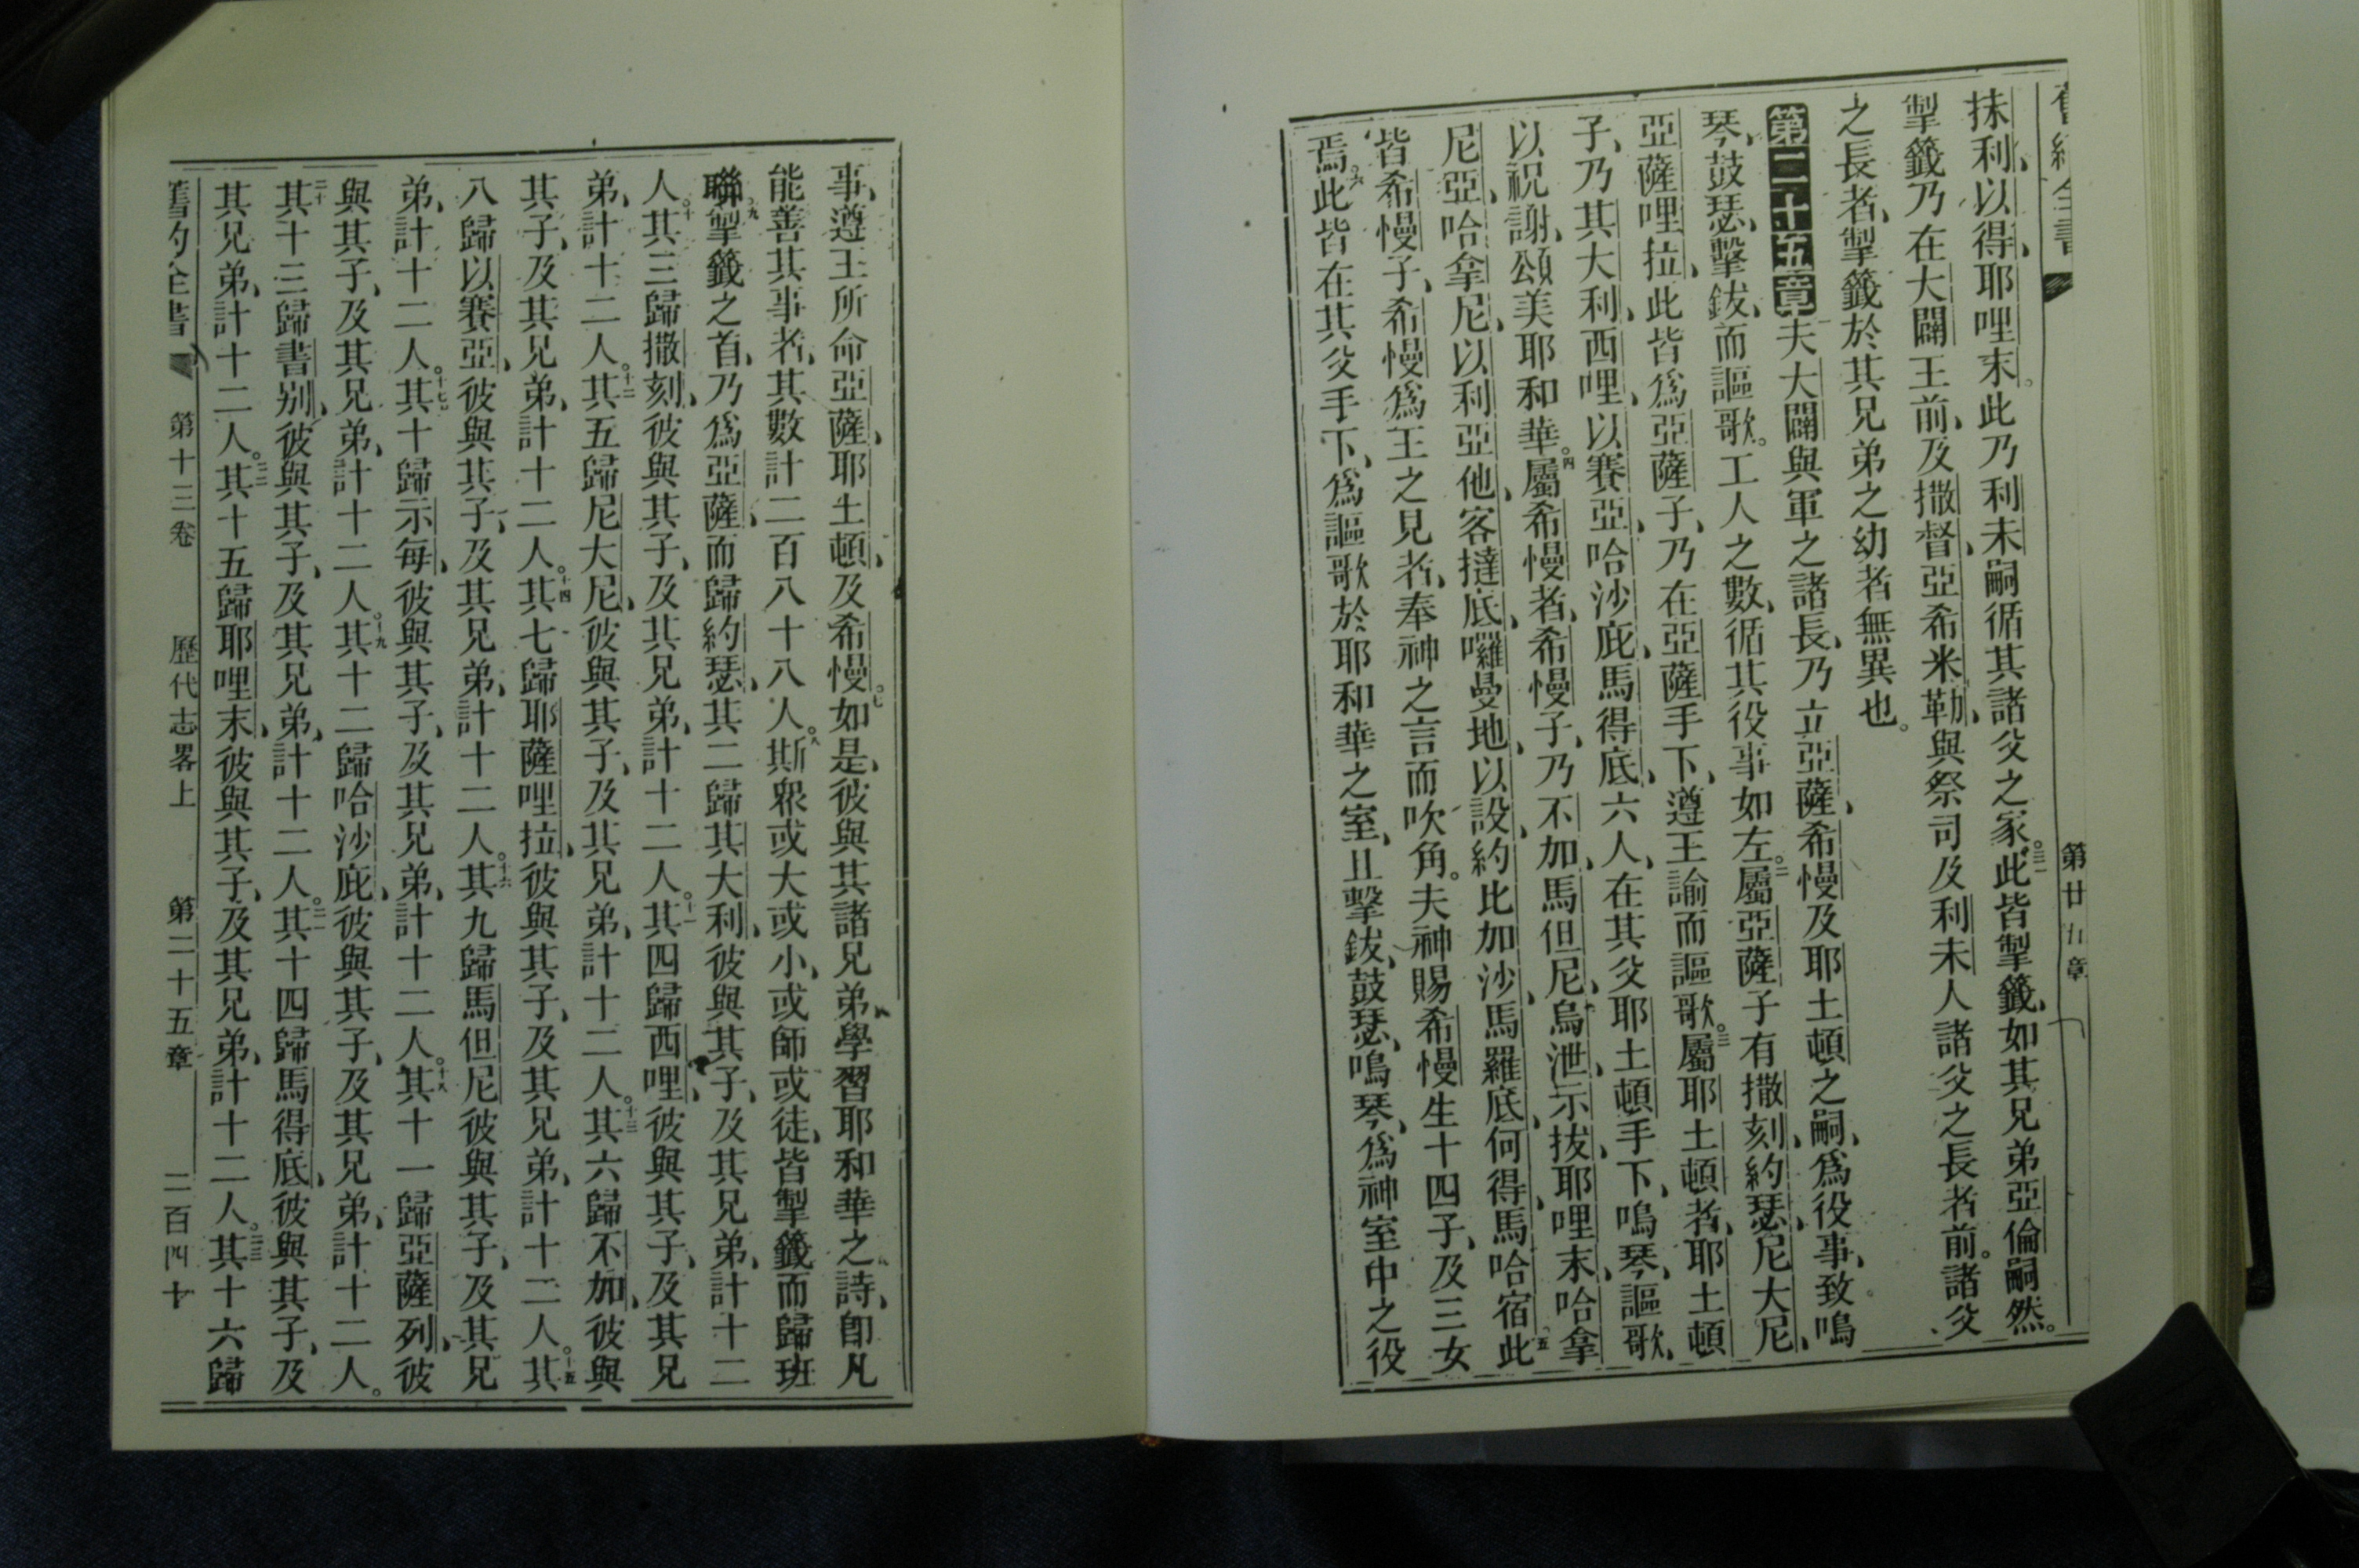 舊約全書 第廿五章
抹利、以得、耶哩末。此乃利未嗣循其諸父之家。三一此皆掣籤、如其兄弟亞倫嗣然。
掣籤乃在大闢王前、及撒督、亞希米勒、與祭司及利未人諸父之長者前。諸父
之長者、掣籤於其兄弟之幼者無異也。
第二十五章夫大闢與軍之諸長、乃立亞薩、希慢及耶土頓之嗣、爲役事、致鳴
琴、鼓瑟、擊鈸、而謳歌。工人之數、循其役事如左。二屬亞薩子有撒刻、約瑟、尼大尼、
亞薩哩拉、此皆爲亞薩子、乃在亞薩手下、遵王諭而謳歌。三屬耶土頓者、耶土頓
子、乃其大利、西哩、以賽亞、哈沙庇、馬得底、六人、在其父耶土頓手下、鳴琴、謳歌、
以祝謝、頌美耶和華。四屬希慢者、希慢子、乃不加、馬但尼、烏泄、示拔、耶哩末、哈拿
尼亞、哈拿尼、以利亞他、客撻底、囉曼地、以設、約比加沙、馬羅底、何得、馬哈宿、五此
皆希慢子、希慢爲王之見者、奉神之言而吹角。夫神賜希慢生十四子、及三女
焉。六此皆在其父手下、爲謳歌於耶和華之室、且擊鈸、鼓瑟、鳴琴、爲神室中之役
事、遵王所命亞薩、耶土頓、及希慢。七如是、彼與其諸兄弟、學習耶和華之詩、卽凡
能善其事者、其數計二百八十八人。八斯衆或大或小、或師或徒、皆掣籤而歸班
聯。九掣籤之首、乃爲亞薩、而歸約瑟、其二歸其大利、彼與其子、及其兄弟、計十二
人。十其三歸撒刻、彼與其子、及其兄弟、計十二人。十一其四歸西哩、彼與其子、及其兄
弟、計十二人。十二其五歸尼大尼、彼與其子、及其兄弟、計十二人。十三其六歸不加、彼與
其子、及其兄弟、計十二人。十四其七歸耶薩哩拉、彼與其子、及其兄弟、計十二人。十五其
八歸以賽亞、彼與其子、及其兄弟、計十二人。十六其九歸馬但尼、彼與其子、及其兄
弟、計十二人。十七其十歸示每、彼與其子、及其兄弟、計十二人。十八其十一歸亞薩列、彼
與其子、及其兄弟、計十二人。十九其十二歸哈沙庇、彼與其子、及其兄弟、計十二人。
二十其十三歸書別、彼與其子、及其兄弟、計十二人。二一其十四歸馬得底、彼與其子、及
其兄弟、計十二人。二二其十五歸耶哩末、彼與其子、及其兄弟、計十二人。二三其十六歸
舊約全書 第十三卷 歷代志畧上 第二十五章 二百四十